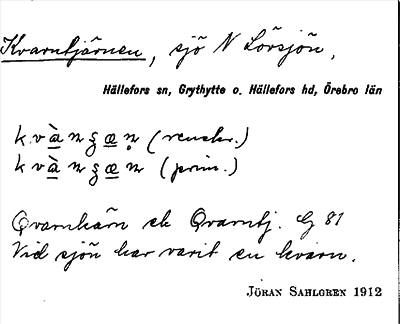 Kvarntjärnen, sjö N Lövsjön,
Hällefors sn, Grythytte o. Hällefors hd, Örebro län
(prim.)
Qvarnkärn ek Qvarntj. Lg 81
Vid sjön har varit en kvarn.
JÖRAN SAHLGREN 1912